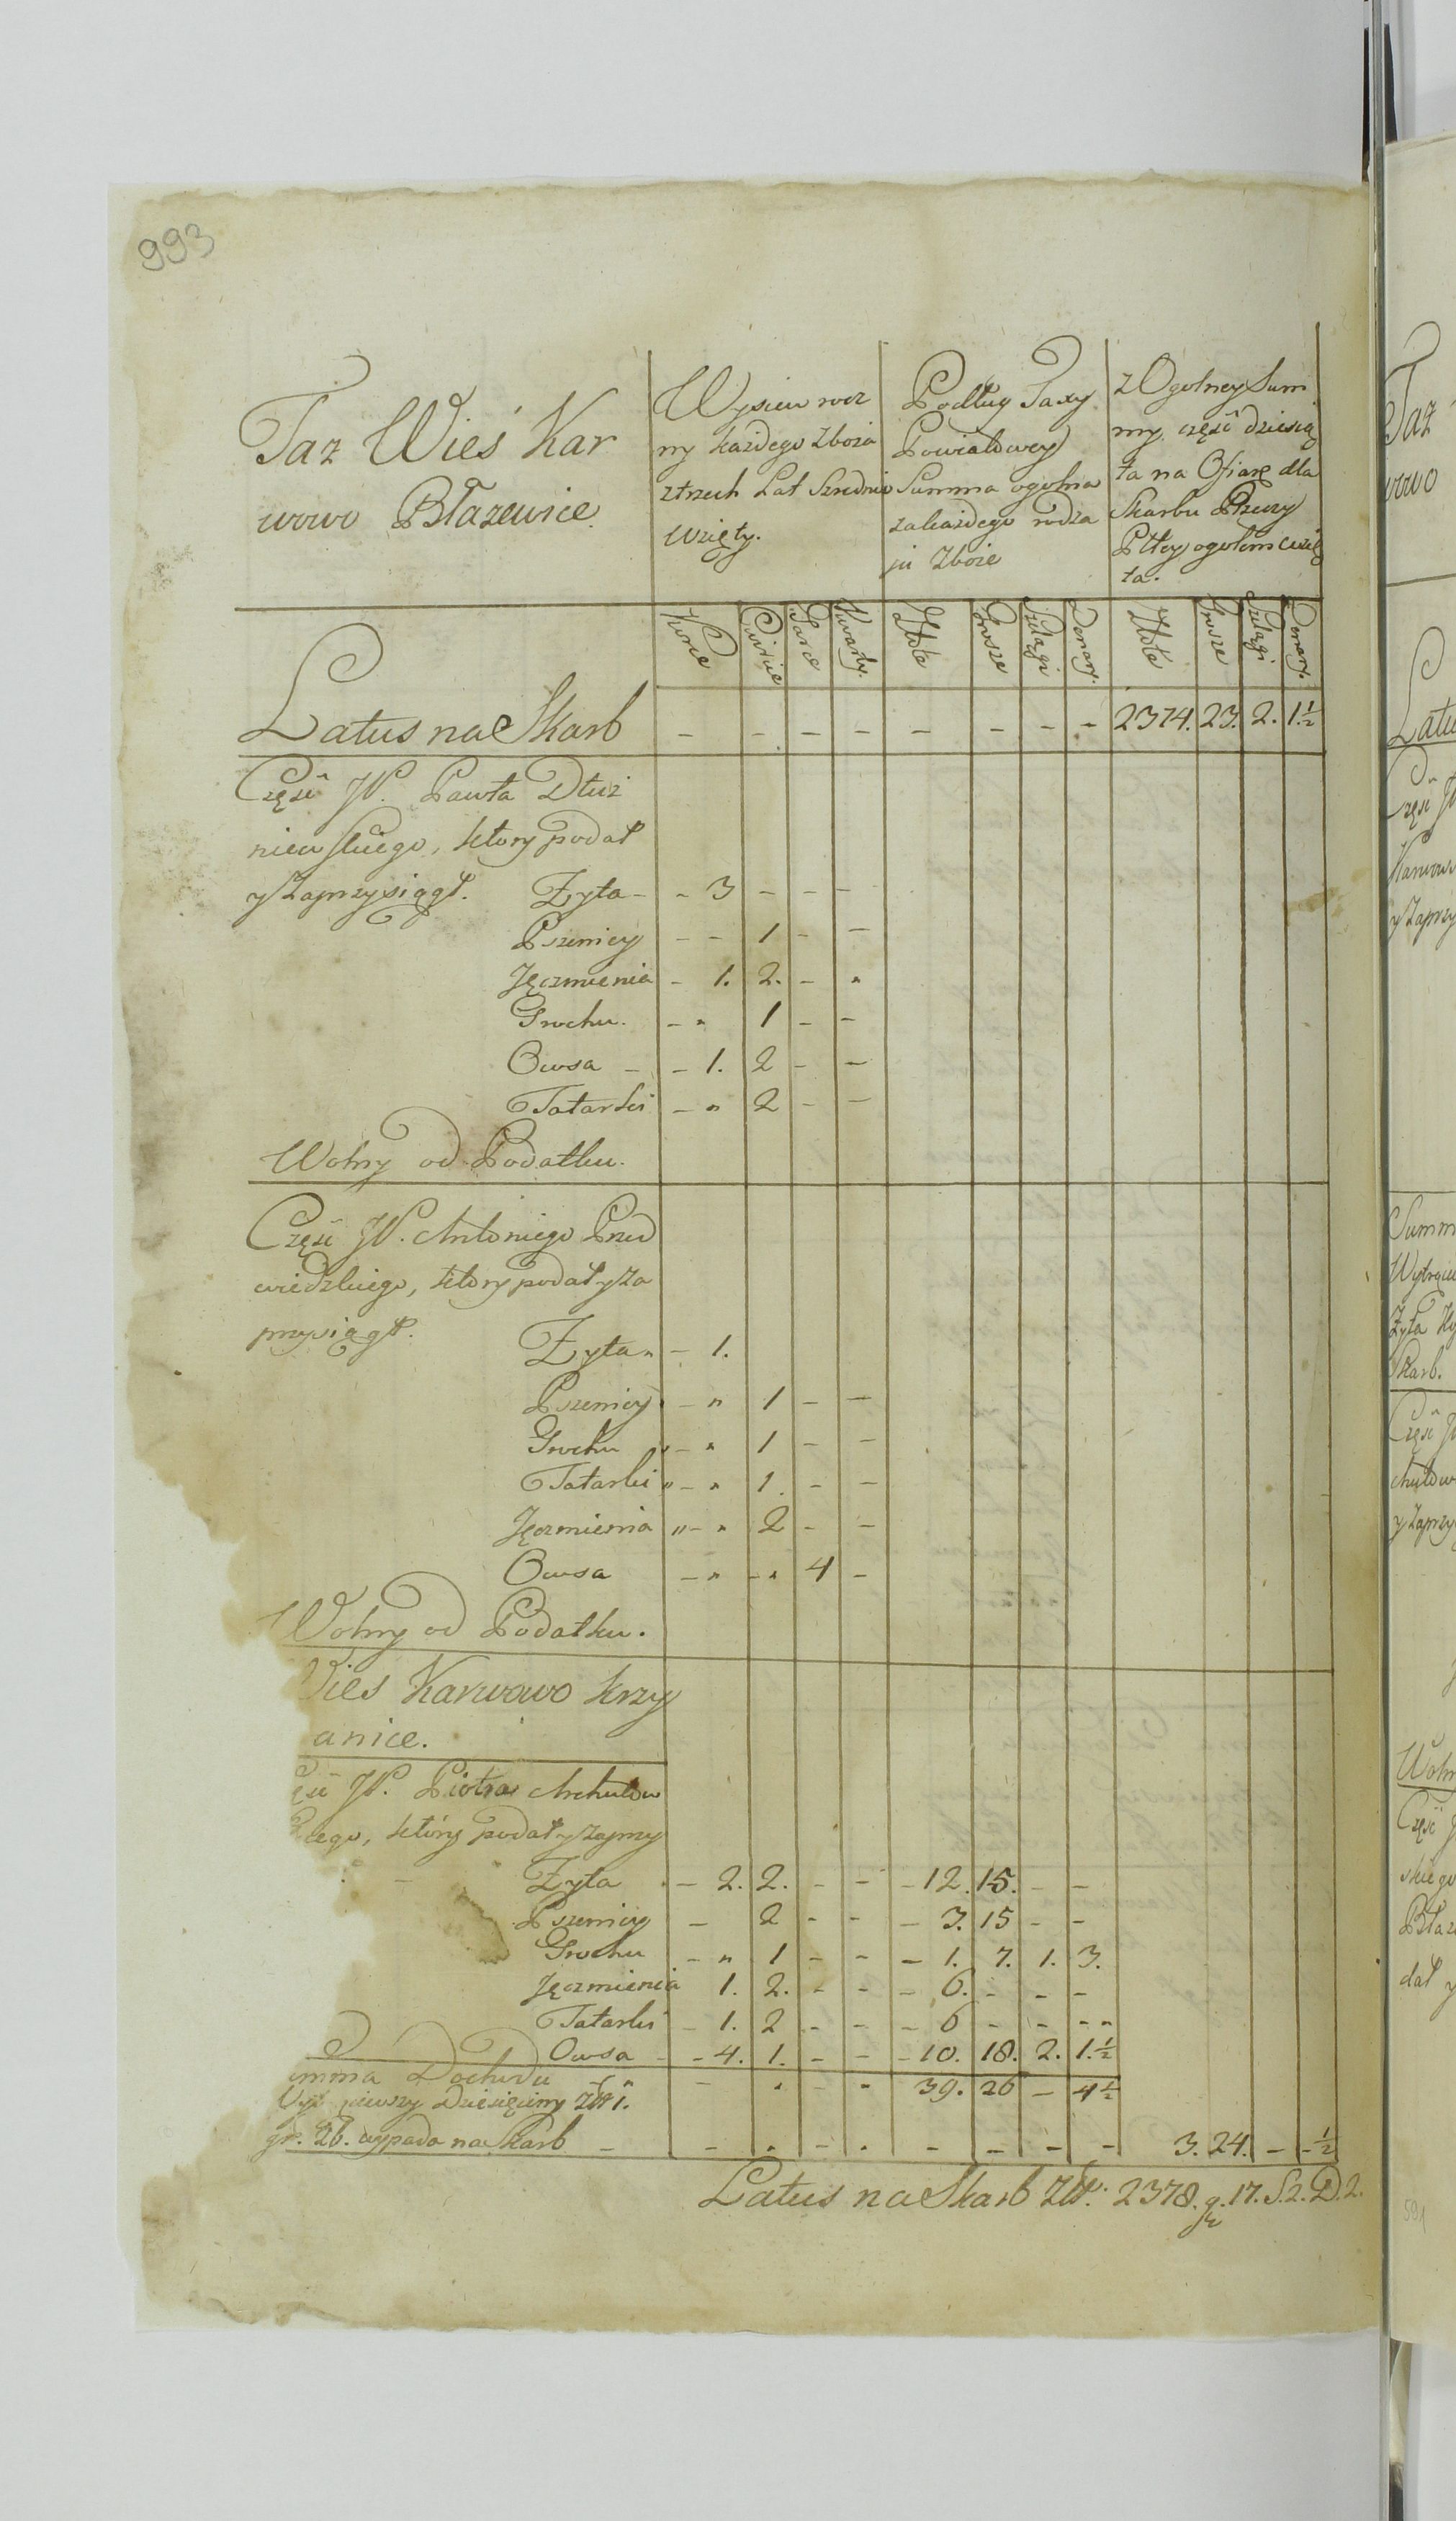 993
Taz Wieś Kar
wowo Błazewice.
Wysiew rocz
ny każdego Zboża
z trzech Lat Szrednio
wzięty.
Podług Taxy
Powiatowey
Summa ogolna
za każdego rodza
ju Zboże
z Ogolney Sum
my, część dziesią
ta na Ofiarę dla
Skarbu Rzeczy
Pltey ogołem wzię
ta.
Korce Cwircie Garce Kwarty. Złote Grosze Szelągi Denary. Złote Grosze Szelągi Denary.
Latus na Skarb - - - - - - - - 2374. 23. 2. 1.½
Część JP. Pawła Dłuż
niewskiego, ktory podał
y Zaprzysiągł. Zyta - - 3 - - -
Pszenicy - - 1 - -
Jęczmienia - 1. 2. - "
Grochu. - " 1 - -
Owsa - - 1. 2 - -
Tatarki - " 2 - -
Wolny od Podatku.
Część JP. Antoniego Przed
wiedzkiego, ktory podał y Za
przysiągł.
Zyta " - 1.
Pszenicy - " 1 - -
Grochu " - " 1 - -
Tatarki " - " 1. - -
Jęczmienia " - " 2 - -
Owsa - " - " 4 -
Wolny od Podatku.
Wies Karwowo Krzy
anice.
JP. Piotra
ego, ktory podał y zaprzy
Zyta - 2. 2. - - - 12. 15. - -
Pszenicy - 2 - - - 3. 15 - -
Grochu - " 1 - - - 1. 7. 1. 3.
Jęczmienia 1. 2. - - - 6. - - -
Tatarki - 1. 2 - - - 6 - - - -
Owsa - 4. 1. - - - 10. 18. 2. 1.½
mma Dochodu - " " 39. 26 - 4½
Dziesięciny Złł 1.
gr. 26. wypada na Skarb - - " - " - - - - 3. 24. - - ½
Latus na Skarb Złł. 2378. g. 17. S. 2. D. 2.
Taz
wowo
Latu
Część J
Karwow
y Zaprzy
Summ
Wytrąc
Zyta
Skarb.
Część J
y Zaprzy
Woln
Część J
skiego
Błaz
dał y
591